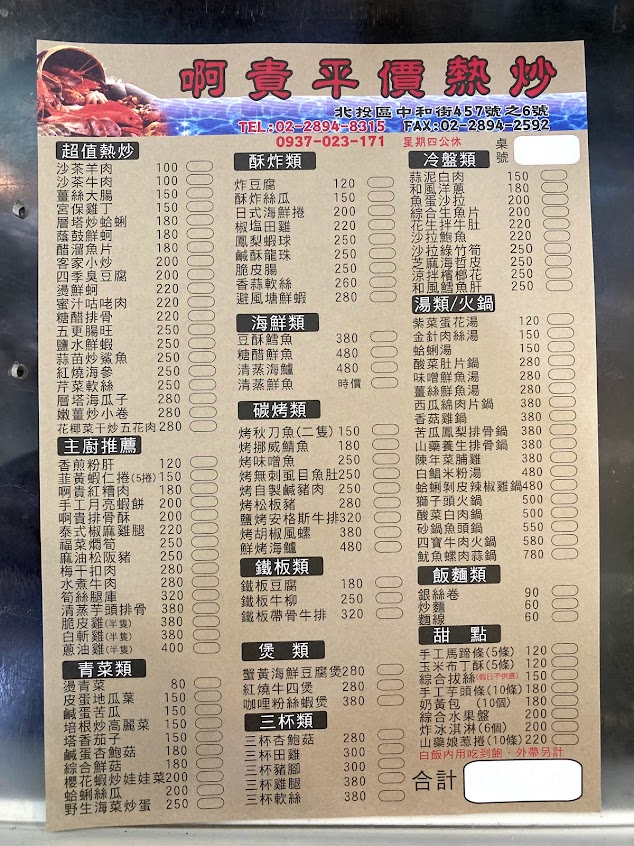 啊貴平價熱炒
北投區中和街457號之6號
TEL:02-2894-8315 FAX:02-2894-2592
0937-023-171 星期四公休
桌號
超值熱炒
沙茶羊肉 100
沙茶牛肉 100
薑絲大腸 150
宮保雞丁 150
層塔炒蛤蜊 180
蔭鼓鮮蚵 180
醋溜魚片 180
客家小炒 200
四季臭豆腐 200
燙鮮蚵 220
蜜汁咕咾肉 220
糖醋排骨 220
五更腸旺 250
鹽水鮮蝦 250
蒜苗炒鯊魚 250
紅燒海參 250
芹菜軟絲 250
層塔海瓜子 280
嫩薑炒小卷 280
花椰菜干炒五花肉 280
主廚推薦
香煎粉肝 120
韭黃蝦仁捲(5捲) 150
啊貴紅糟肉 180
手工月亮蝦餅 200
啊貴排骨酥 200
泰式椒麻雞腿 220
福菜燜筍 250
麻油松阪豬 250
梅干扣肉 280
水煮牛肉 280
筍絲腿庫 320
清蒸芋頭排骨 380
脆皮雞(半隻) 380
白斬雞(半隻) 380
蔥油雞(半隻) 400
青菜類
燙青菜 80
皮蛋地瓜葉 150
鹹蛋苦瓜 150
培根炒高麗菜 150
塔香茄子 150
鹹蛋杏鮑菇 180
綜合鮮菇 180
櫻花蝦炒娃娃菜 200
蛤蜊絲瓜 200
野生海菜炒蛋 250
酥炸類
炸豆腐 120
酥炸絲瓜 150
日式海鮮捲 200
椒塩田雞 220
鳳梨蝦球 250
鹹酥龍珠 250
脆皮腸 250
香蒜軟絲 260
避風塘鮮蝦 280
海鮮類
豆酥鱈魚 380
糖醋鮮魚 480
清蒸海鱸 480
清蒸鮮魚 時價
碳烤類
烤秋刀魚(二隻) 150
烤挪威鯖魚 180
烤味噌魚 250
烤無刺虱目魚肚 250
烤自製鹹豬肉 250
烤松板豬 280
鹽烤安格斯牛排 320
烤胡椒風螺 380
鮮烤海鱸 480
鐵板類
鐵板豆腐 180
鐵板牛柳 250
鐵板帶骨牛排 320
煲類
蟹黃海鮮豆腐煲 280
紅燒牛四煲 280
咖哩粉絲蝦煲 380
三杯類
三杯杏鮑菇 280
三杯田雞 300
三杯豬腳 300
三杯雞腿 380
三杯軟絲 380
冷盤類
蒜泥白肉 150
和風洋蔥 180
魚蛋沙拉 200
綜合生魚片 200
花生拌牛肚 220
沙拉鮑魚 220
沙拉綠竹筍 250
芝麻海哲皮 250
涼拌檳榔花 250
和風鱈魚肝 250
湯類/火鍋
紫菜蛋花湯 120
金針肉絲湯 150
蛤蜊湯 150
酸菜肚片鍋 380
味噌鮮魚湯 380
薑絲鮮魚湯 380
西瓜綿肉片鍋 380
香菇雞鍋 380
苦瓜鳳梨排骨鍋 380
山藥養生排骨鍋 380
陳年菜脯雞 380
白鯧米粉湯 480
蛤蜊剝皮辣椒雞鍋 480
獅子頭火鍋 500
酸菜白肉鍋 500
砂鍋魚頭鍋 550
四寶牛肉火鍋 580
魷魚螺肉蒜鍋 780
飯麵類
銀絲卷 90
炒麵 60
麵線 60
甜點
手工馬蹄條(5條) 120
玉米布丁酥(5條) 120
綜合拔絲(假日不供應) 150
手工芋頭條(10條) 180
奶黃包(10個) 180
綜合水果盤 200
炸冰淇淋(6個) 200
山藥娘惹捲(10條) 220
白飯內用吃到飽．外帶另計
合計